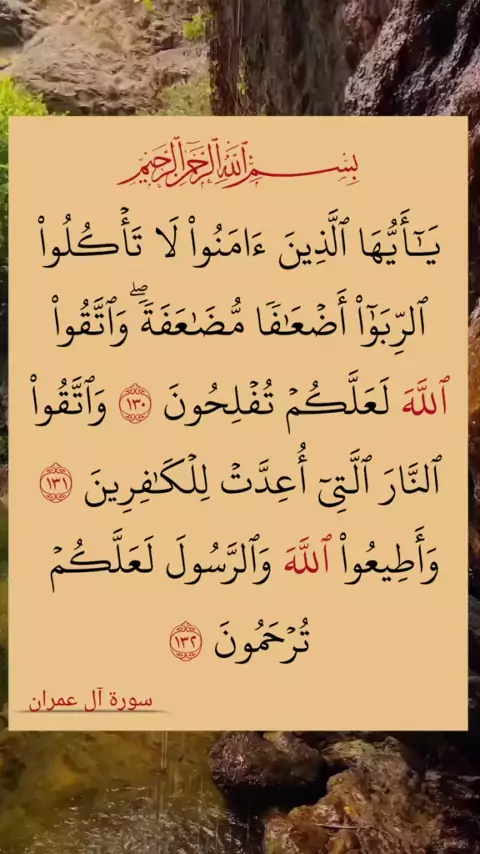 بِسْمِ ٱللَّهِ ٱلرَّحْمَٰنِ ٱلرَّحِيمِ
يَـٰٓأَيُّهَا ٱلَّذِينَ ءَامَنُوا۟ لَا تَأْكُلُوا۟
ٱلرِّبَوٰٓا۟ أَضْعَـٰفًا مُّضَـٰعَفَةً ۖ وَٱتَّقُوا۟
ٱللَّهَ لَعَلَّكُمْ تُفْلِحُونَ ١٣٠ وَٱتَّقُوا۟
ٱلنَّارَ ٱلَّتِىٓ أُعِدَّتْ لِلْكَـٰفِرِينَ ١٣١
وَأَطِيعُوا۟ ٱللَّهَ وَٱلرَّسُولَ لَعَلَّكُمْ
تُرْحَمُونَ ١٣٢
سورة آل عمران